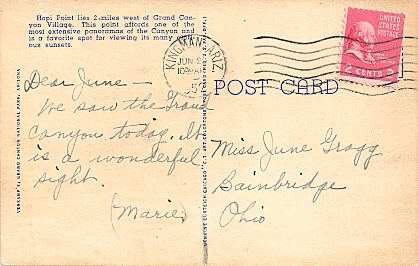 Hopi Point lies 2-miles west of Grand Can-
yon Village. This point affords one of the
most extensive panoramas of the Canyon and
is a favorite spot for viewing its many
ous sunsets.
Dear June —
We saw the Grand
Canyon today. It
is a wonderful
sight.
(Marie)
VERKAMP'S, GRAND CANYON NATIONAL PARK, ARIZONA
GENUINE CURTEICH-CHICAGO "C.T. ART-COLORTONE"
KINGMAN, ARIZ.
JUN 2
10 AM
UNITED
STATES
POSTAGE
2 CENTS 2
POST CARD
Miss June Gragg
Bainbridge
Ohio